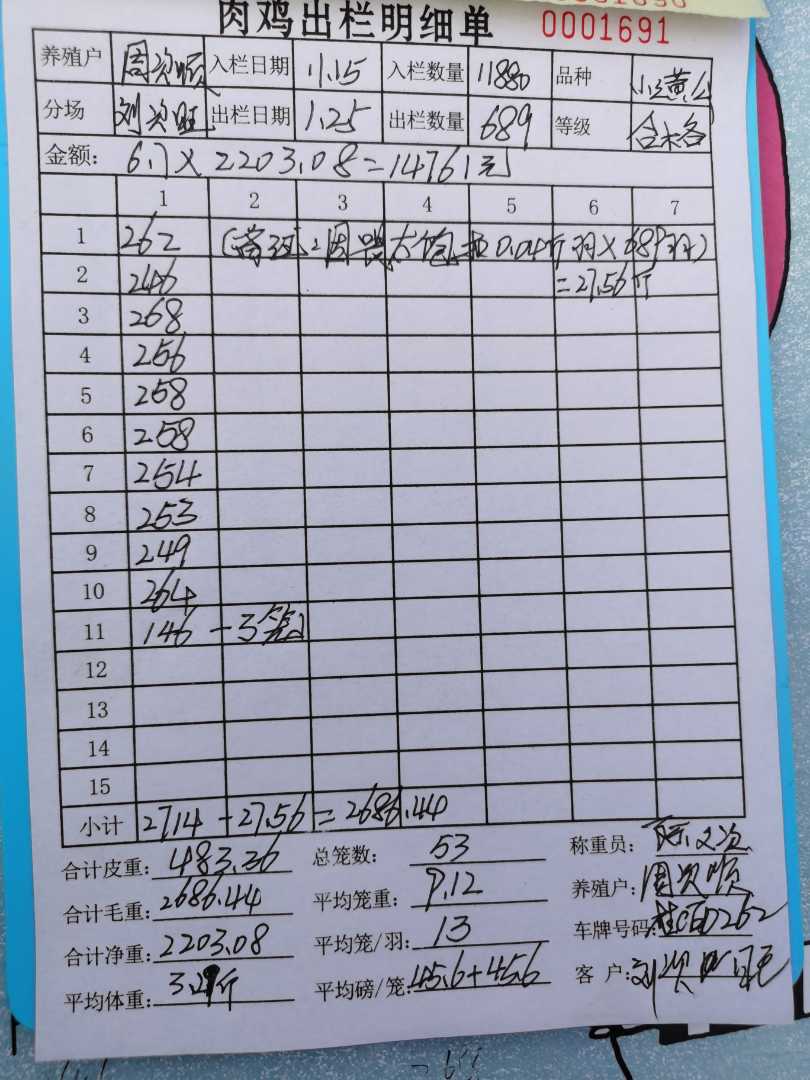 肉鸡出栏明细单 0001691
养殖户 周次顺 入栏日期 11.15 入栏数量 11880 品种
分场 刘次旺 出栏日期 1.25 出栏数量 689 等级 合格
金额: 6.7×2203.08=14761元
1 2 3 4 5 6 7
1 262
2 246 =27.56斤
3 268
4 256
5 258
6 258
7 254
8 253
9 249
10 264
11 146 -3笼
12
13
14
15
小计 2714-27.56=2686.44
合计皮重: 483.36 总笼数: 53 称重员:
合计毛重: 2686.44 平均笼重: 9.12 养殖户: 周次顺
合计净重: 2203.08 平均笼/羽: 13 车牌号码:
平均体重: 斤 平均磅/笼: 45.6+45.6 客户: